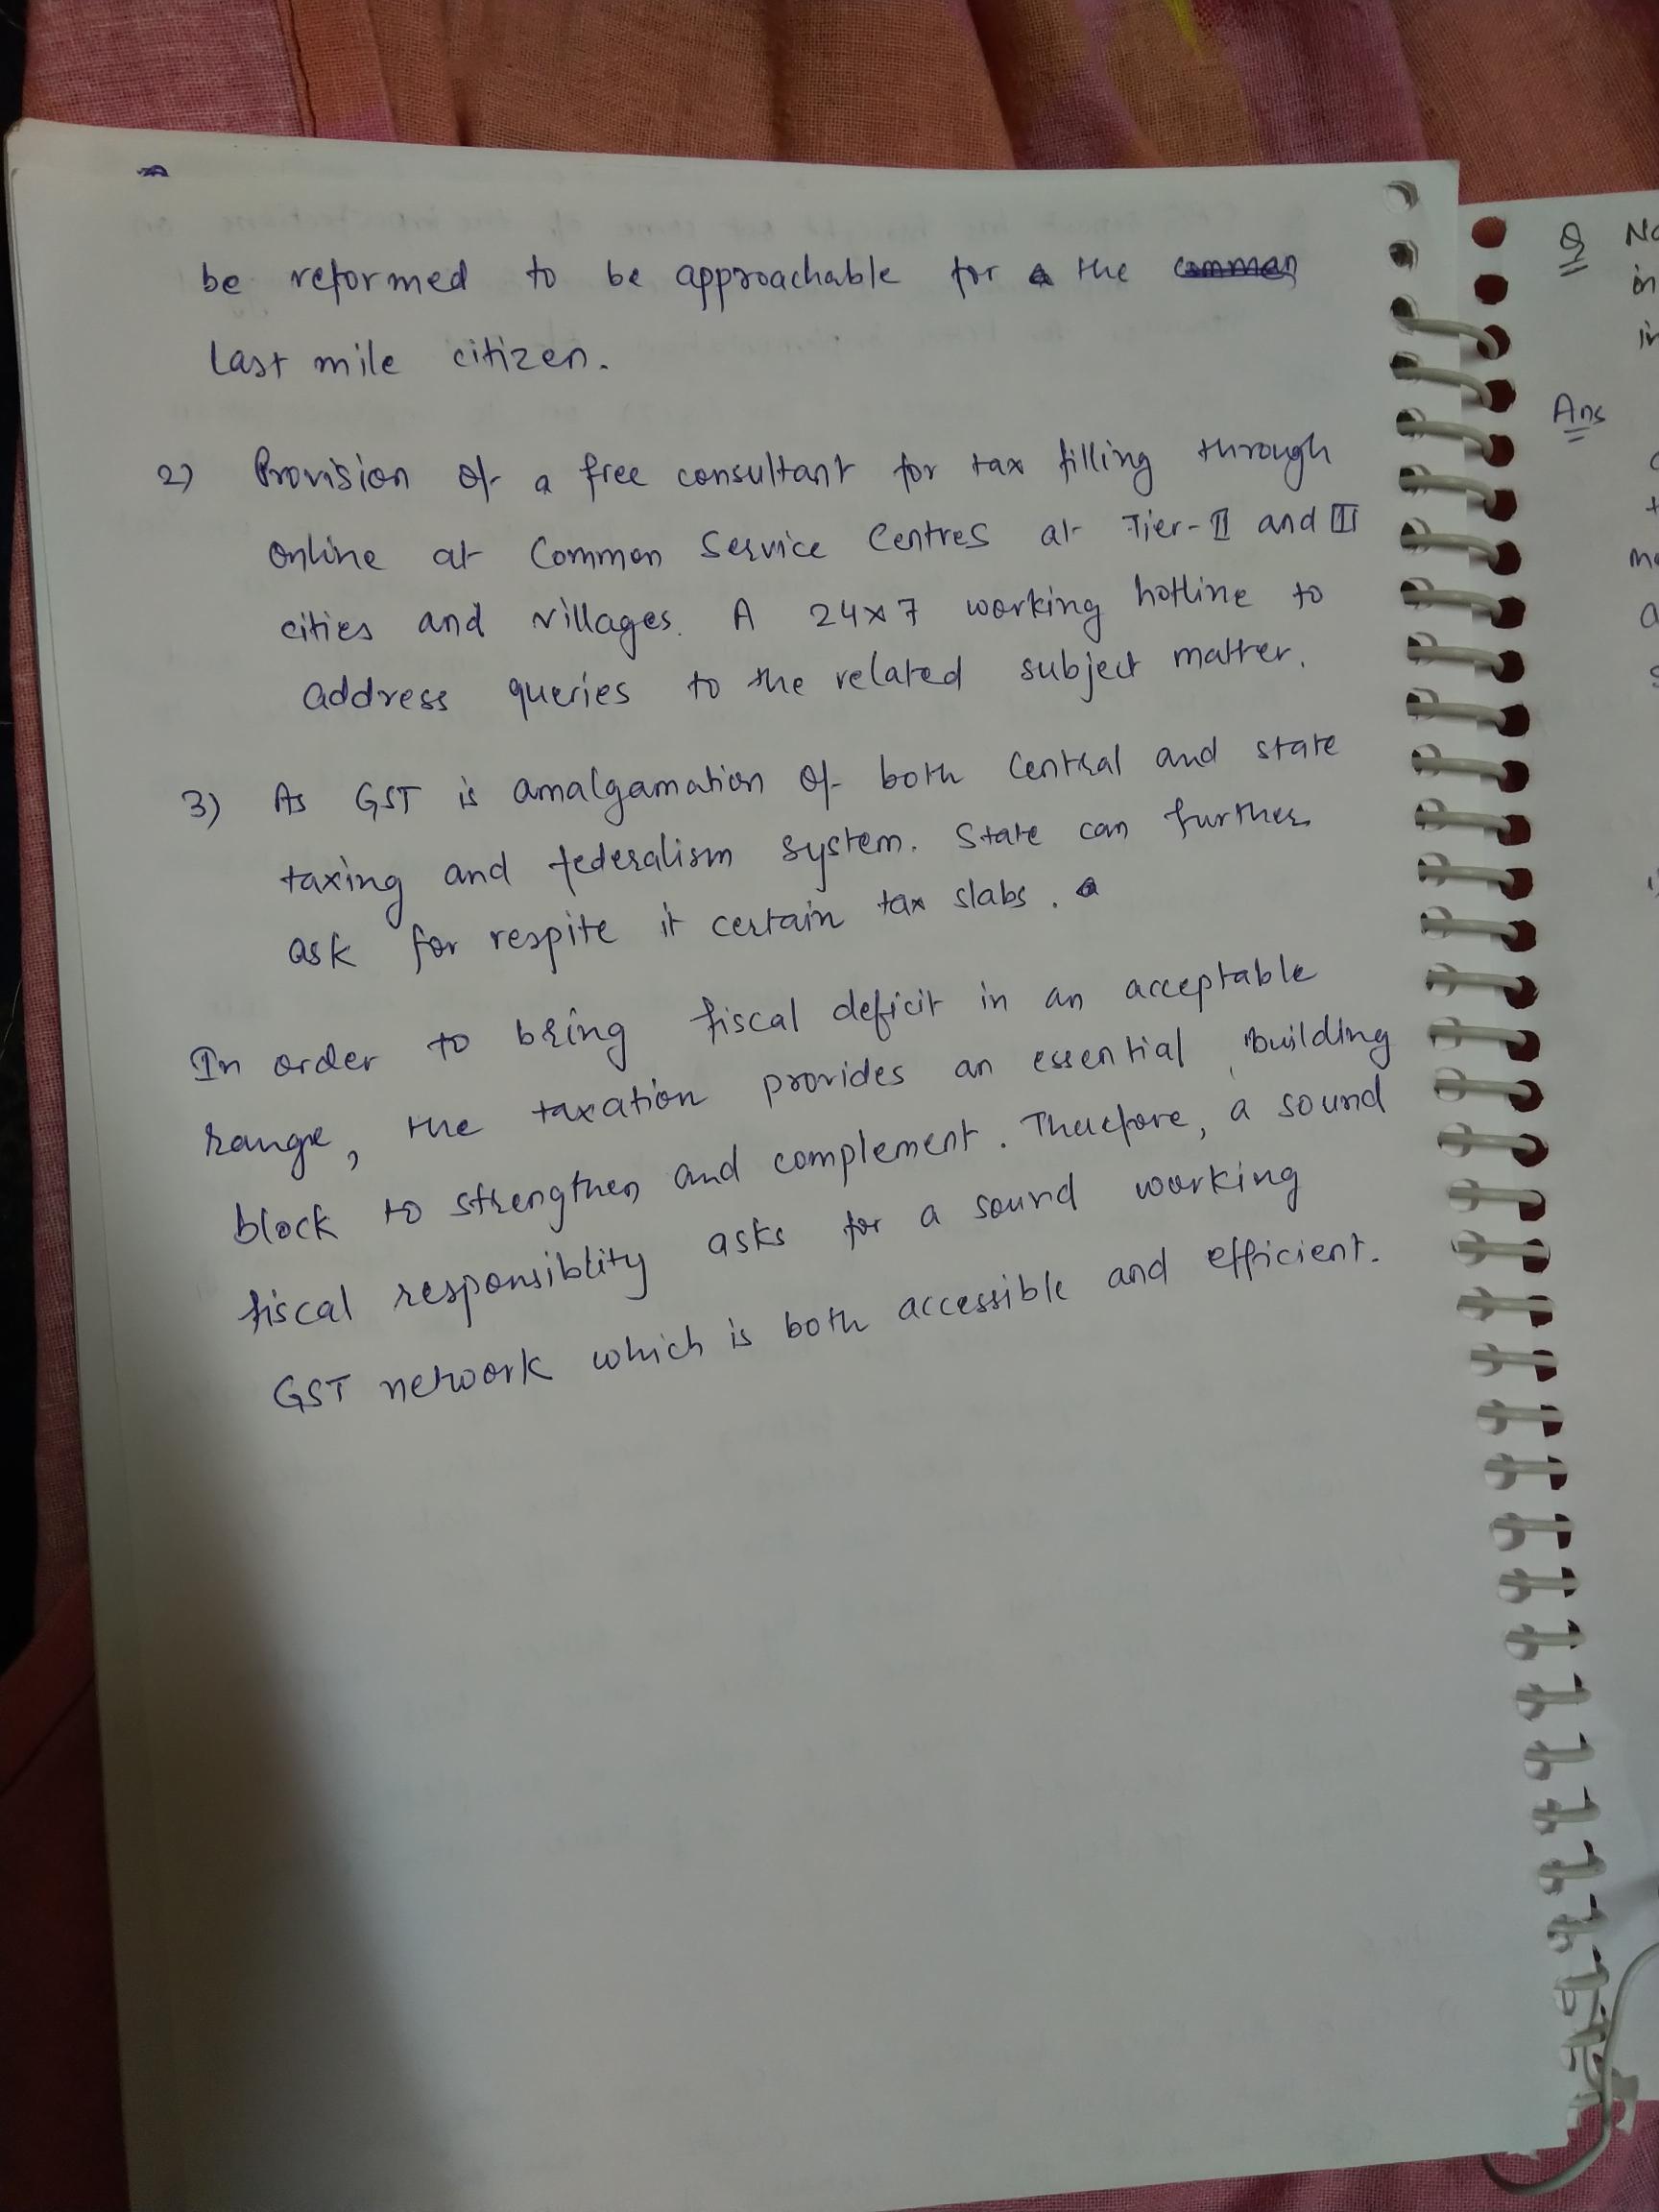 be reformed to be approachable for the
last mile citizen.
2) Provision of a free consultant for tax filling through
online at Common Service Centres at Tier-II and III
cities and villages. A 24x7 working hotline to
address queries to the related subject matter.
3) As GST is amalgamation of both Central and state
taxing and federalism system. State can further
ask for respite it certain tax slabs.
In order to bring fiscal deficit in an acceptable
range, the taxation provides an essential building
block to strengthen and complement. Therefore, a sound
fiscal responsiblity asks for a sound working
GST network which is both accessible and efficient.
Q
Ans